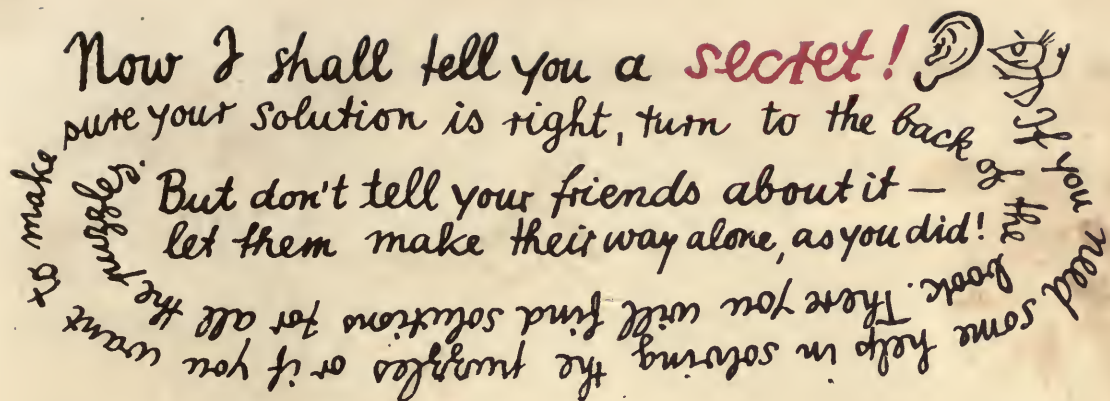 Now I shall tell you a secret!
If you need some help in solving the puzzles or if you want to make sure your solution is right, turn to the back of the book. There you will find solutions for all the puzzles.
But don't tell your friends about it —
let them make their way alone, as you did!